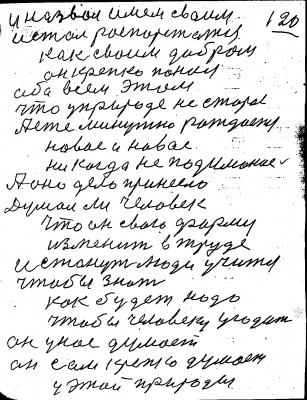 и назвал имем своим
120
и стал роспоражатся
как своим добром
он крепко понял
оба всем этом
что у природе не старае
А ете минутно рождается
новае и новае
никогда не подиманае
А оно дело принесло
Думал ли человек
что он свого форму
изменит в труде
и станут люди учится
чтобы знат
как будет надо
чтобы человеку угодит
он у нас думает
он сам крепко думает
у этой природы